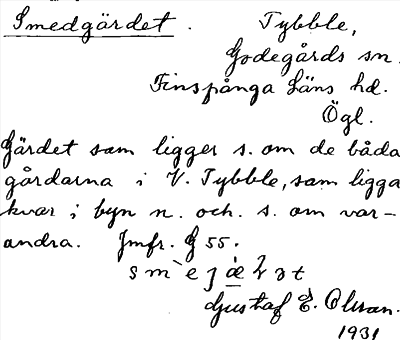 Smedgärdet. Tybble,
Godegårds sn.
Finspånga Läns hd.
Ögl.
Gärdet som ligger s. om de båda
gårdarna i V. Tybble, som ligga
kvar i byn n. och. s. om var-
andra. Jmfr. G 55.
Gustaf E. Olsson.
1931